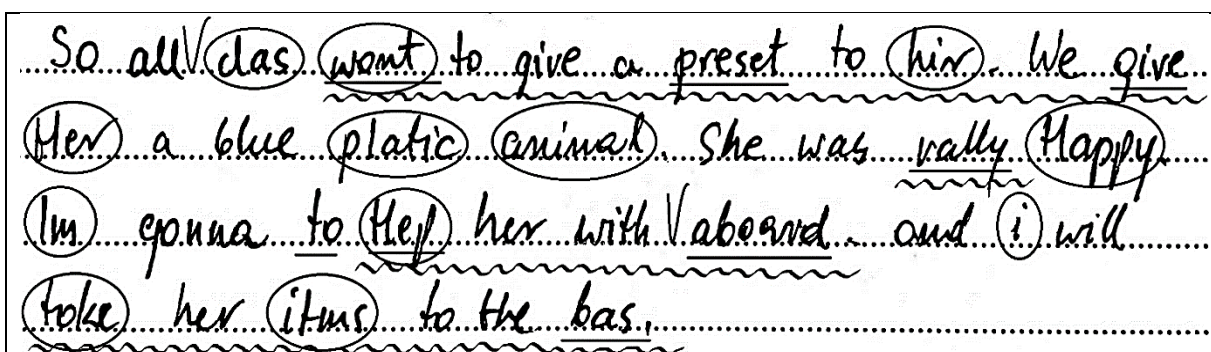 So all V clas want to give a preset to hir. We give
Her a blue platic animal. She was rally Happy.
Im gonna to Help her with V aboard. and i will
toke her itms to the bas.